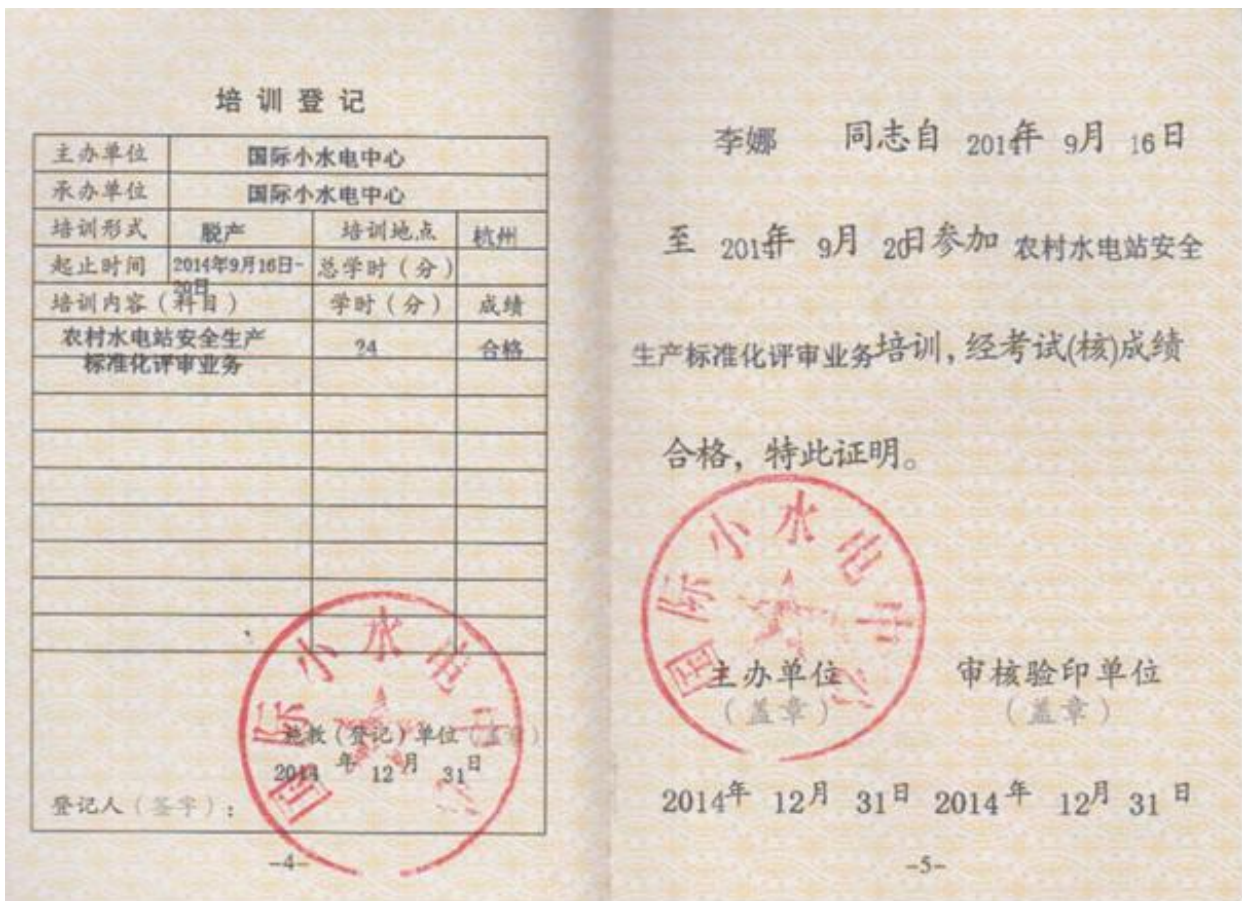 培训登记
主办单位 国际小水电中心
承办单位 国际小水电中心
培训形式 脱产 培训地点 杭州
起止时间 2014年9月16日-20日 总学时（分）
培训内容（科目） 学时（分） 成绩
农村水电站安全生产 24 合格
标准化评审业务
国际小水电中心
施教（登记）单位（盖章）
2014年12月31日
登记人（签字）：
-4-
李娜 同志自 2014年 9月 16日
至 2014年 9月 20日参加 农村水电站安全
生产标准化评审业务培训，经考试(核)成绩
合格，特此证明。
国际小水电中心
主办单位 审核验印单位
（盖章） （盖章）
2014年 12月 31日 2014年 12月 31日
-5-